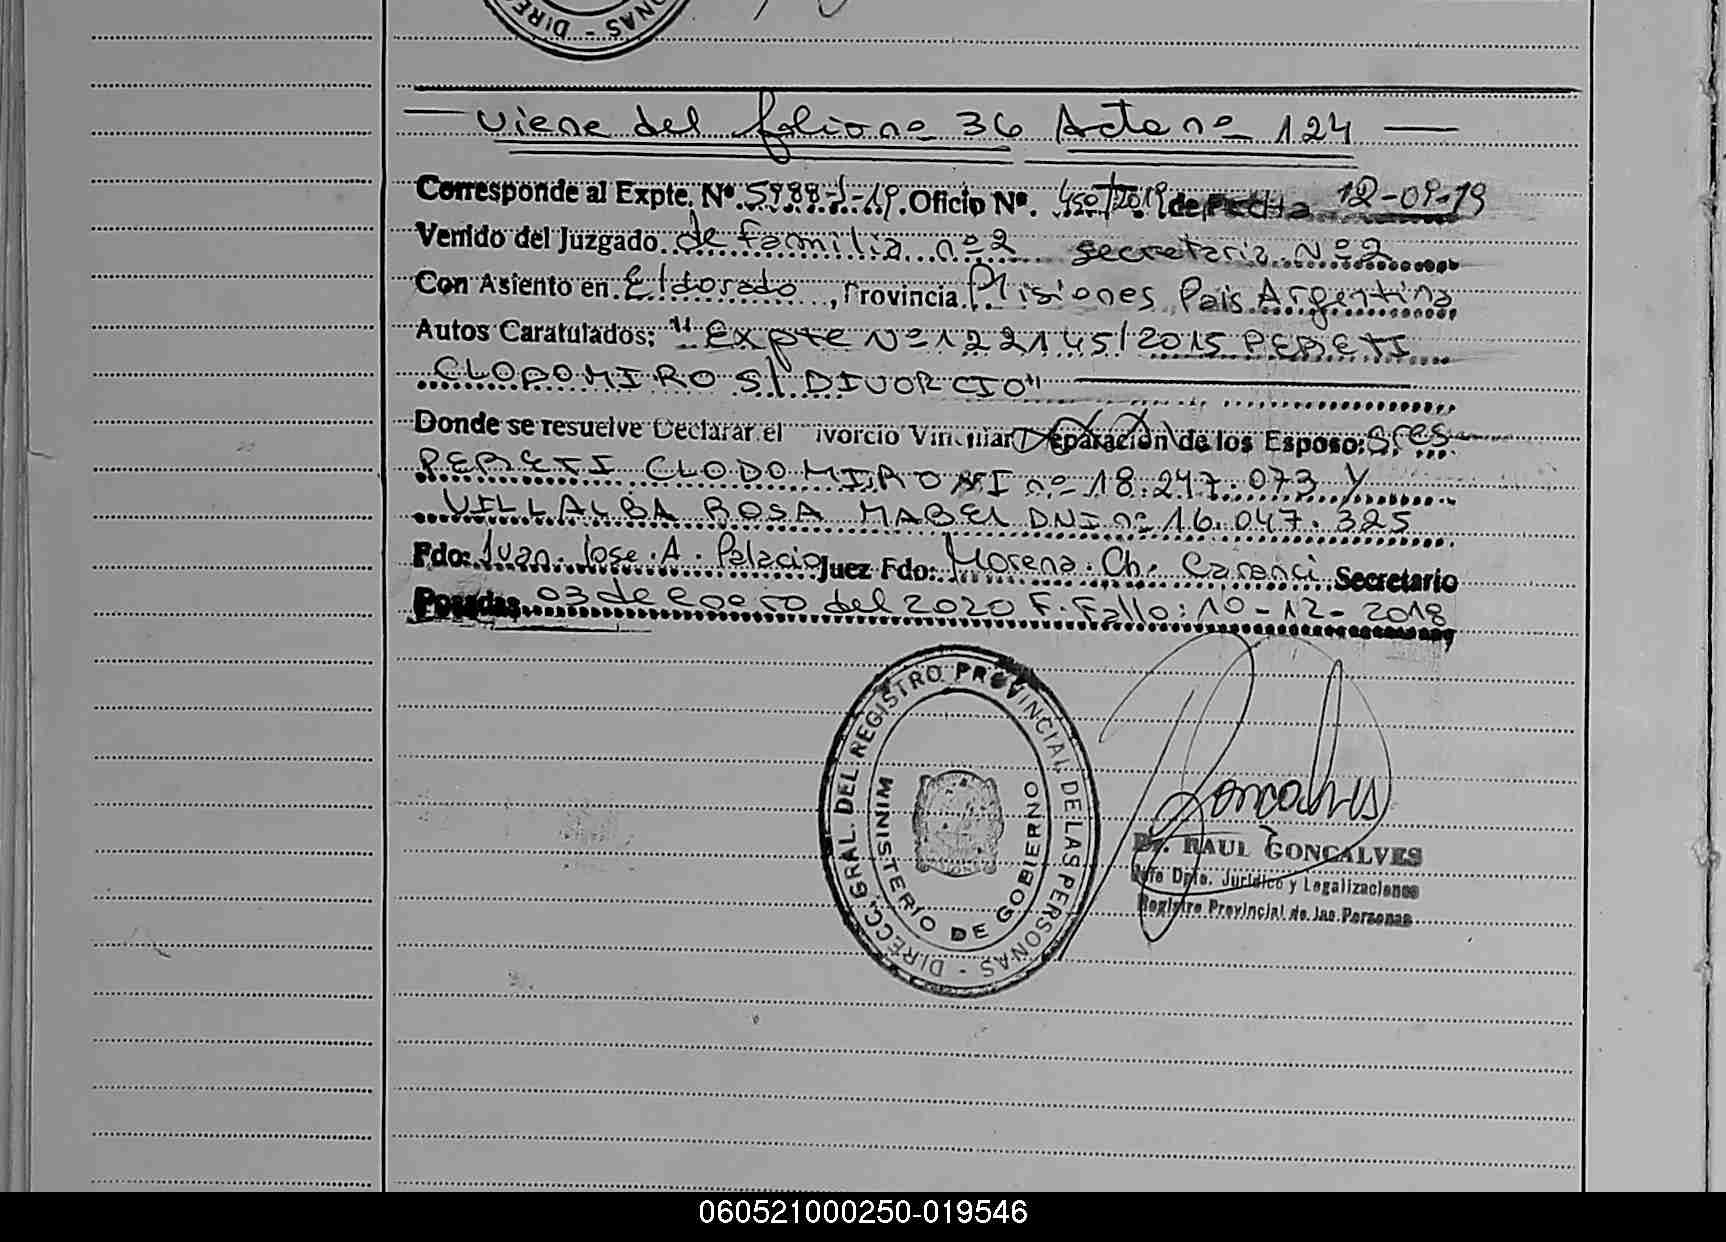 DIRECC. ONAS -
Viene del folio nº 36 Acta nº 124
Corresponde al Expte. Nº 5988-J-19. Oficio Nº. 450/2019 de Fecha 12-09-19
Venido del Juzgado de familia nº 2 secretaria Nº 2
Con Asiento en Eldorado, Provincia Misiones Pais Argentina
Autos Caratulados; "Expte Nº 122145/2015 PEDETI
CLODOMIRO S/ DIVORCIO"
Donde se resuelve Declarar el ivorcio Vincular Separación de los Esposo: Sres
CLODOMIRO MI nº 18.247.073 Y
VILLALBA ROSA MABEL DNI nº 16.047.325
Fdo: Juan Jose A. Palacio Juez Fdo: Morena Ch. Caranci Secretario
Posadas 03 de enero del 2020 F. Fallo: 10-12-2018
DIRECC. GRAL. DEL REGISTRO PROVINCIAL DE LAS PERSONAS -
MINISTERIO DE GOBIERNO
Goncalves
Dr. RAUL GONCALVES
Jefe Dpto. Juridico y Legalizaciones
Registro Provincial de las Personas
060521000250-019546